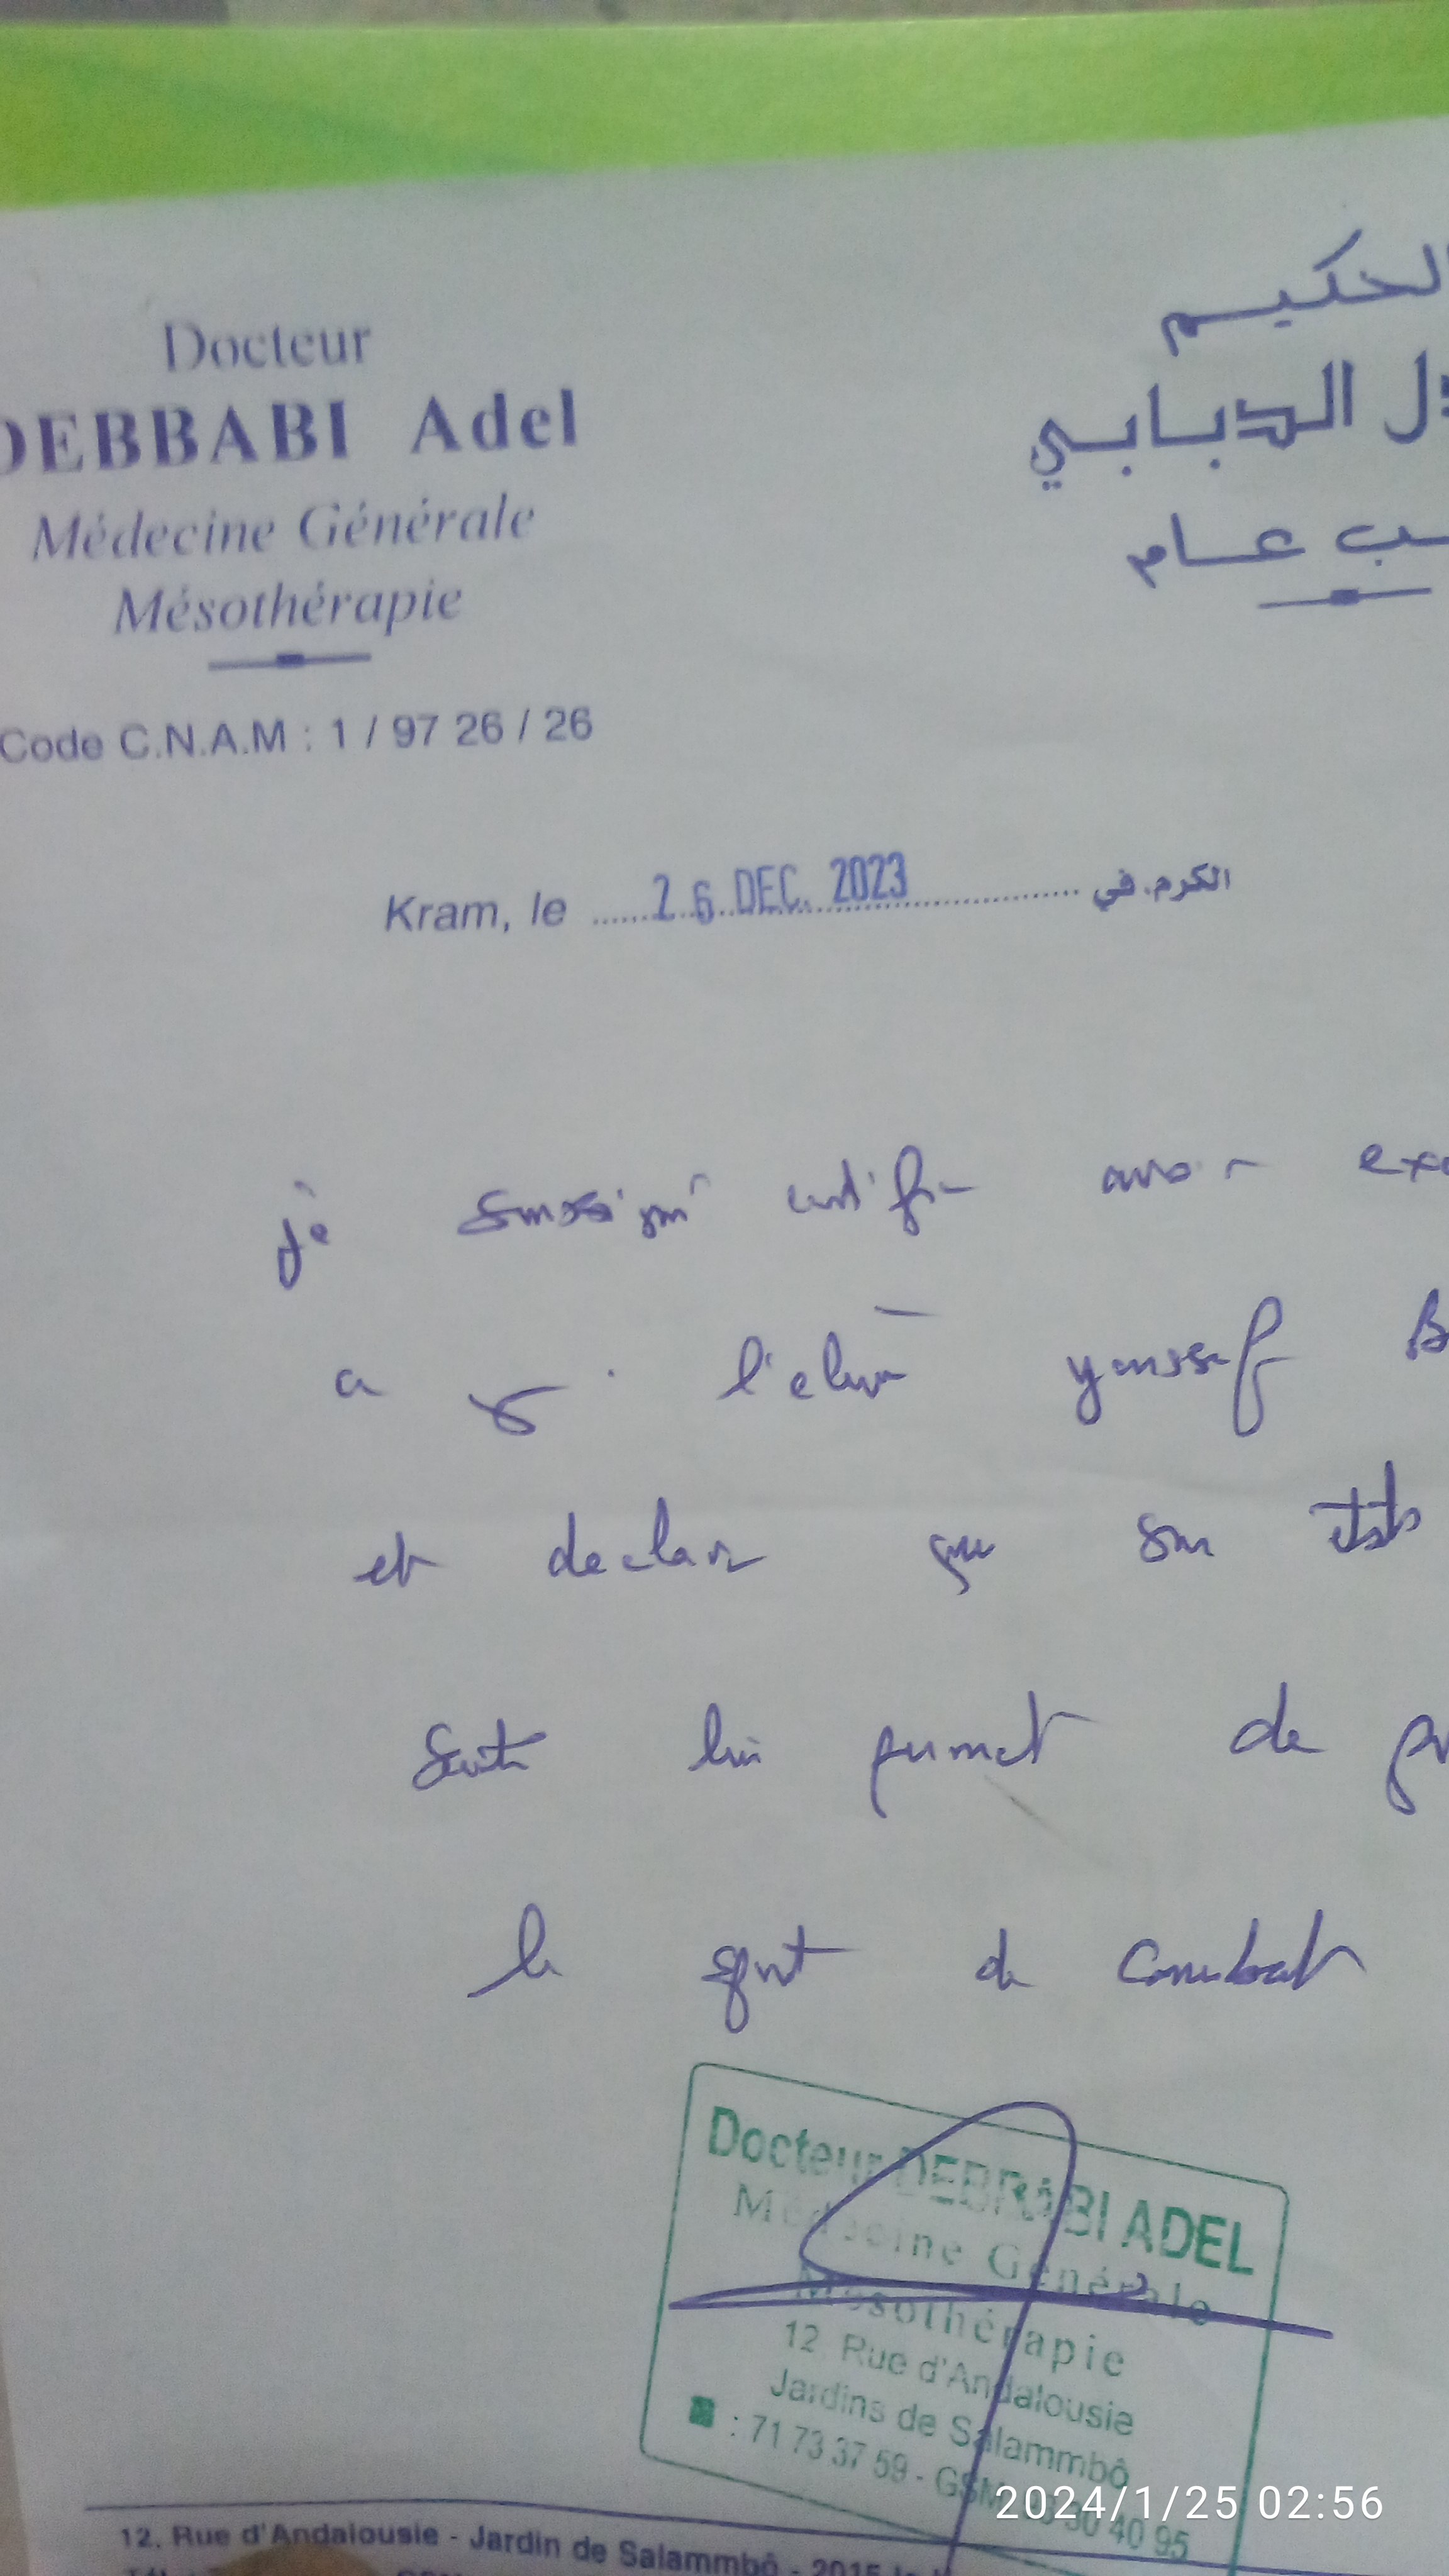 Docteur
DEBBABI Adel
Médecine Générale
Mésothérapie
Code C.N.A.M : 1 / 97 26 / 26
الحكيم
دل الدبابي
ب عام
Kram, le 26 DEC. 2023 الكرم، في
je soussigné certifie avoir exa
a l'élève youssef B
et declare que son état
Santé lui permet de pr
le sport de Combat
Docteur DEBBABI ADEL
Médecine Générale
Mésothérapie
12 Rue d'Andalousie
Jardins de Salammbô
: 71 73 37 59 - GSM 40 95
2024/1/25 02:56
12. Rue d'Andalousie - Jardin de Salammbô - 2015